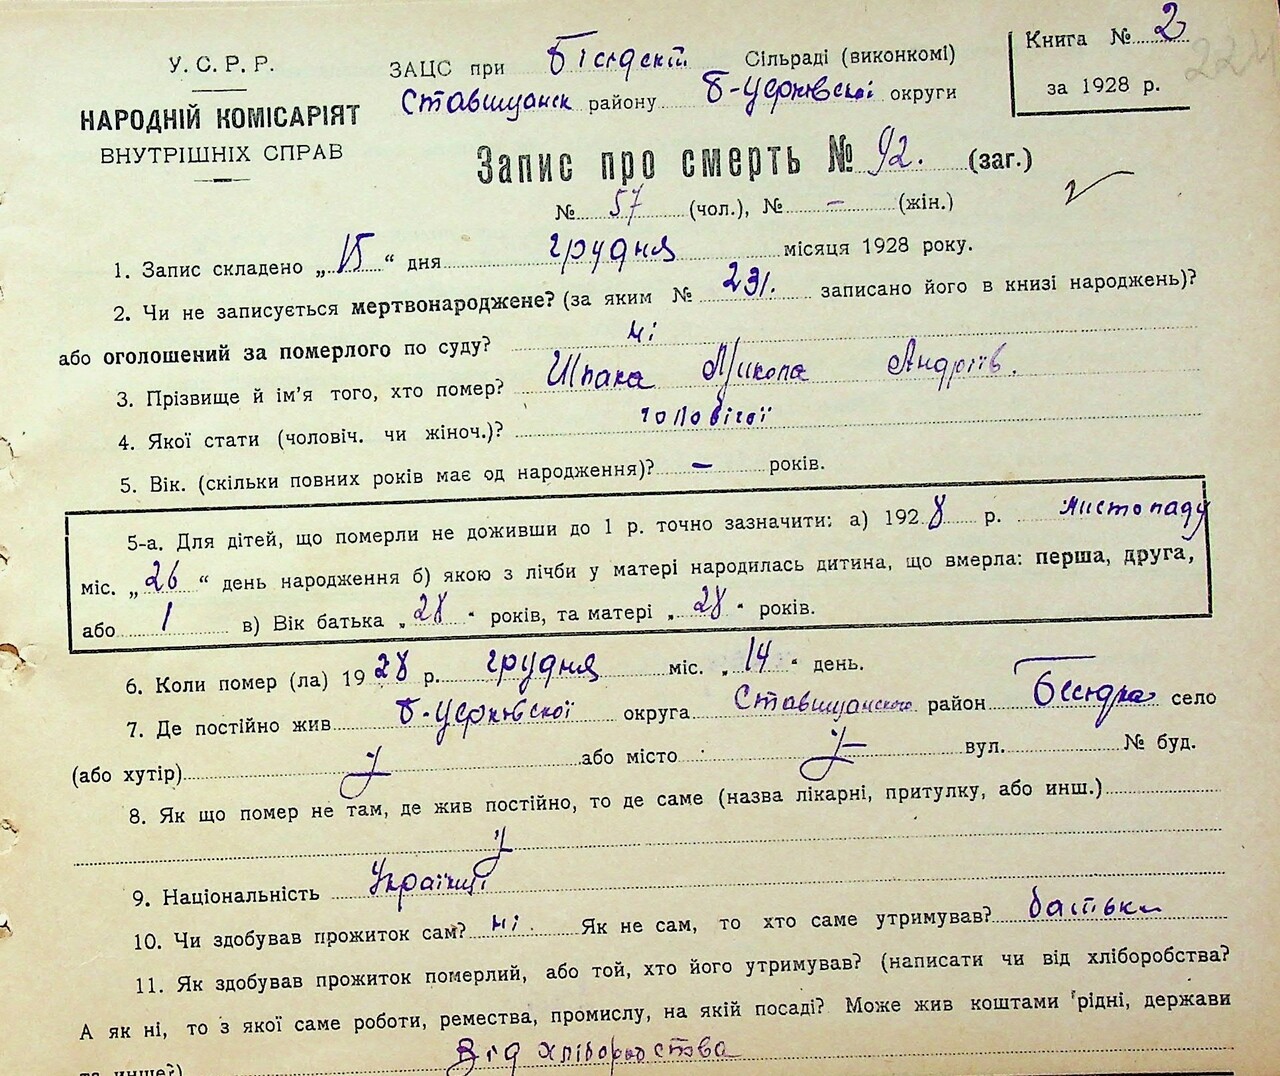 У. С. Р. Р.
НАРОДНІЙ КОМІСАРІЯТ
ВНУТРІШНІХ СПРАВ
ЗАЦС при Бісидскій Сільраді (виконкомі)
Ставищанск району Б-Церківської округи
Книга № 2
за 1928 р.
Запис про смерть № 92. (заг.)
№ 57 (чол.), № – (жін.)
1. Запис складено „15“ дня грудня місяця 1928 року.
2. Чи не записується мертвонароджене? (за яким № 231. записано його в книзі народжень)?
або оголошений за померлого по суду? ні
3. Прізвище й ім'я того, хто помер? Шпака Микола Андріїв.
4. Якої стати (чоловіч. чи жіноч.)? чоловічої
5. Вік. (скільки повних років має од народження)? – років.
5-а. Для дітей, що померли не доживши до 1 р. точно зазначити: а) 1928 р. листопаду
міс. „26“ день народження б) якою з лічби у матері народилась дитина, що вмерла: перша, друга,
або 1 в) Вік батька „28“ років, та матері „28“ років.
6. Коли помер (ла) 1928 р. грудня міс. „14“ день.
7. Де постійно жив Б-Церківської округа Ставищанского район Бесідка село
(або хутір) у або місто у вул. № буд.
8. Як що помер не там, де жив постійно, то де саме (назва лікарні, притулку, або инш.)
у
9. Національність Українці
10. Чи здобував прожиток сам? ні. Як не сам, то хто саме утримував? батьки
11. Як здобував прожиток померлий, або той, хто його утримував? (написати чи від хліборобства?
А як ні, то з якої саме роботи, ремества, промислу, на якій посаді? Може жив коштами рідні, держави
та инше?) Від хліборобства